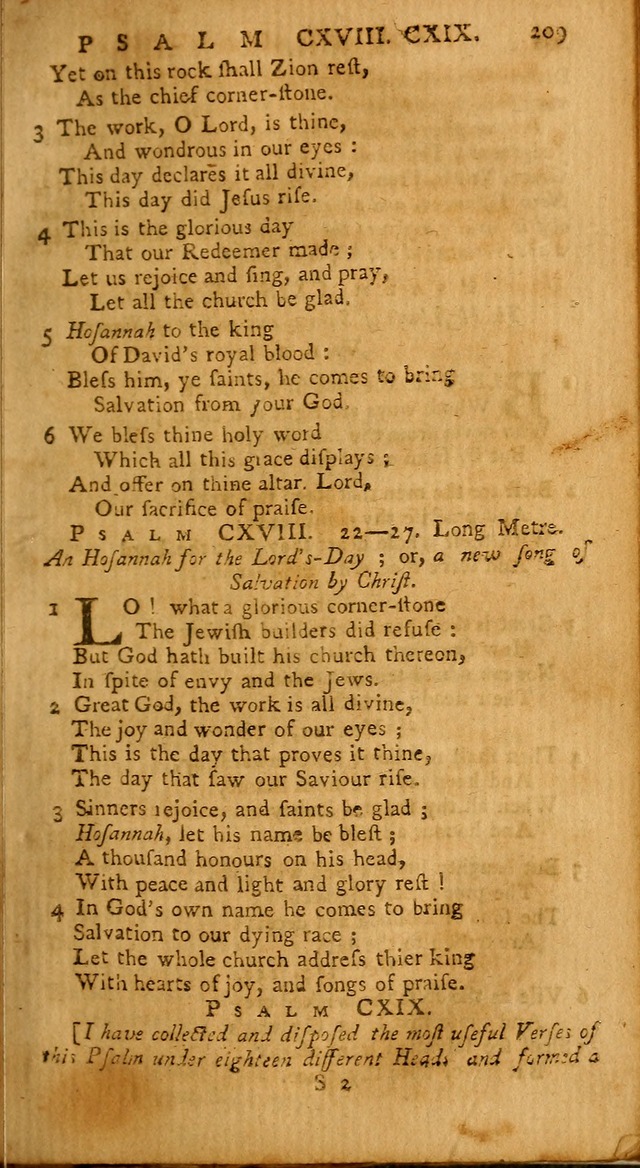 PSALM CXVIII. CXIX. 209
Yet on this rock ſhall Zion reſt,
As the chief corner-ſtone.
3 The work, O Lord, is thine,
And wondrous in our eyes :
This day declares it all divine,
This day did Jeſus riſe.
4 This is the glorious day
That our Redeemer made ;
Let us rejoice and ſing, and pray,
Let all the church be glad.
5 Hoſannah to the king
Of David's royal blood :
Bleſs him, ye ſaints, he comes to bring
Salvation from your God.
6 We bleſs thine holy word
Which all this grace diſplays ;
And offer on thine altar. Lord,
Our ſacrifice of praiſe.
PSALM CXVIII. 22—27. Long Metre.
An Hoſannah for the Lord's-Day ; or, a new ſong of
Salvation by Chriſt.
1 LO ! what a glorious corner-ſtone
The Jewiſh builders did refuſe :
But God hath built his church thereon,
In ſpite of envy and the Jews.
2 Great God, the work is all divine,
The joy and wonder of our eyes ;
This is the day that proves it thine,
The day that ſaw our Saviour riſe.
3 Sinners rejoice, and ſaints be glad ;
Hoſannah, let his name be bleſt ;
A thouſand honours on his head,
With peace and light and glory reſt !
4 In God's own name he comes to bring
Salvation to our dying race ;
Let the whole church addreſs thier king
With hearts of joy, and ſongs of praiſe.
PSALM CXIX.
[I have collected and diſpoſed the moſt uſeful Verſes of
this Pſalm under eighteen different Heads and formed a
S 2